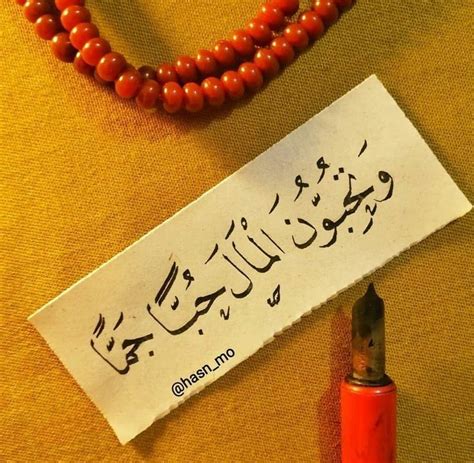 وَتُحِبُّونَ الْمَالَ حُبًّا جَمًّا
@hasn_mo